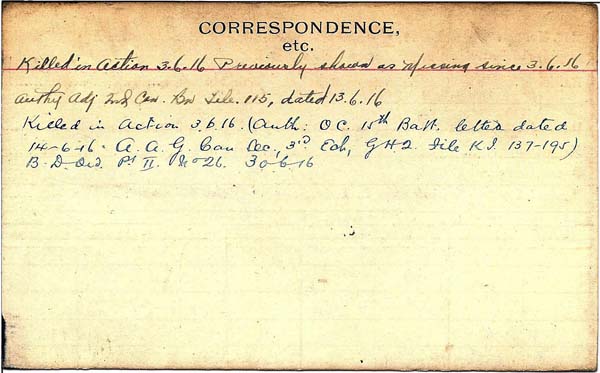 CORRESPONDENCE,
etc.
Killed in Action 3.6.16 Previously shown as Missing since 3.6.16
Authy Adj 2nd Can. Bn File. 115, dated 13.6.16
Killed in Action 3.6.16. (Auth: O.C. 15th Batt. letter dated
14-6-16. A.A.G. Can Sec, 3rd Ech, GHQ. File K.I. 137-195)
B.D. Ord. Pt II. No 26. 30-6-16